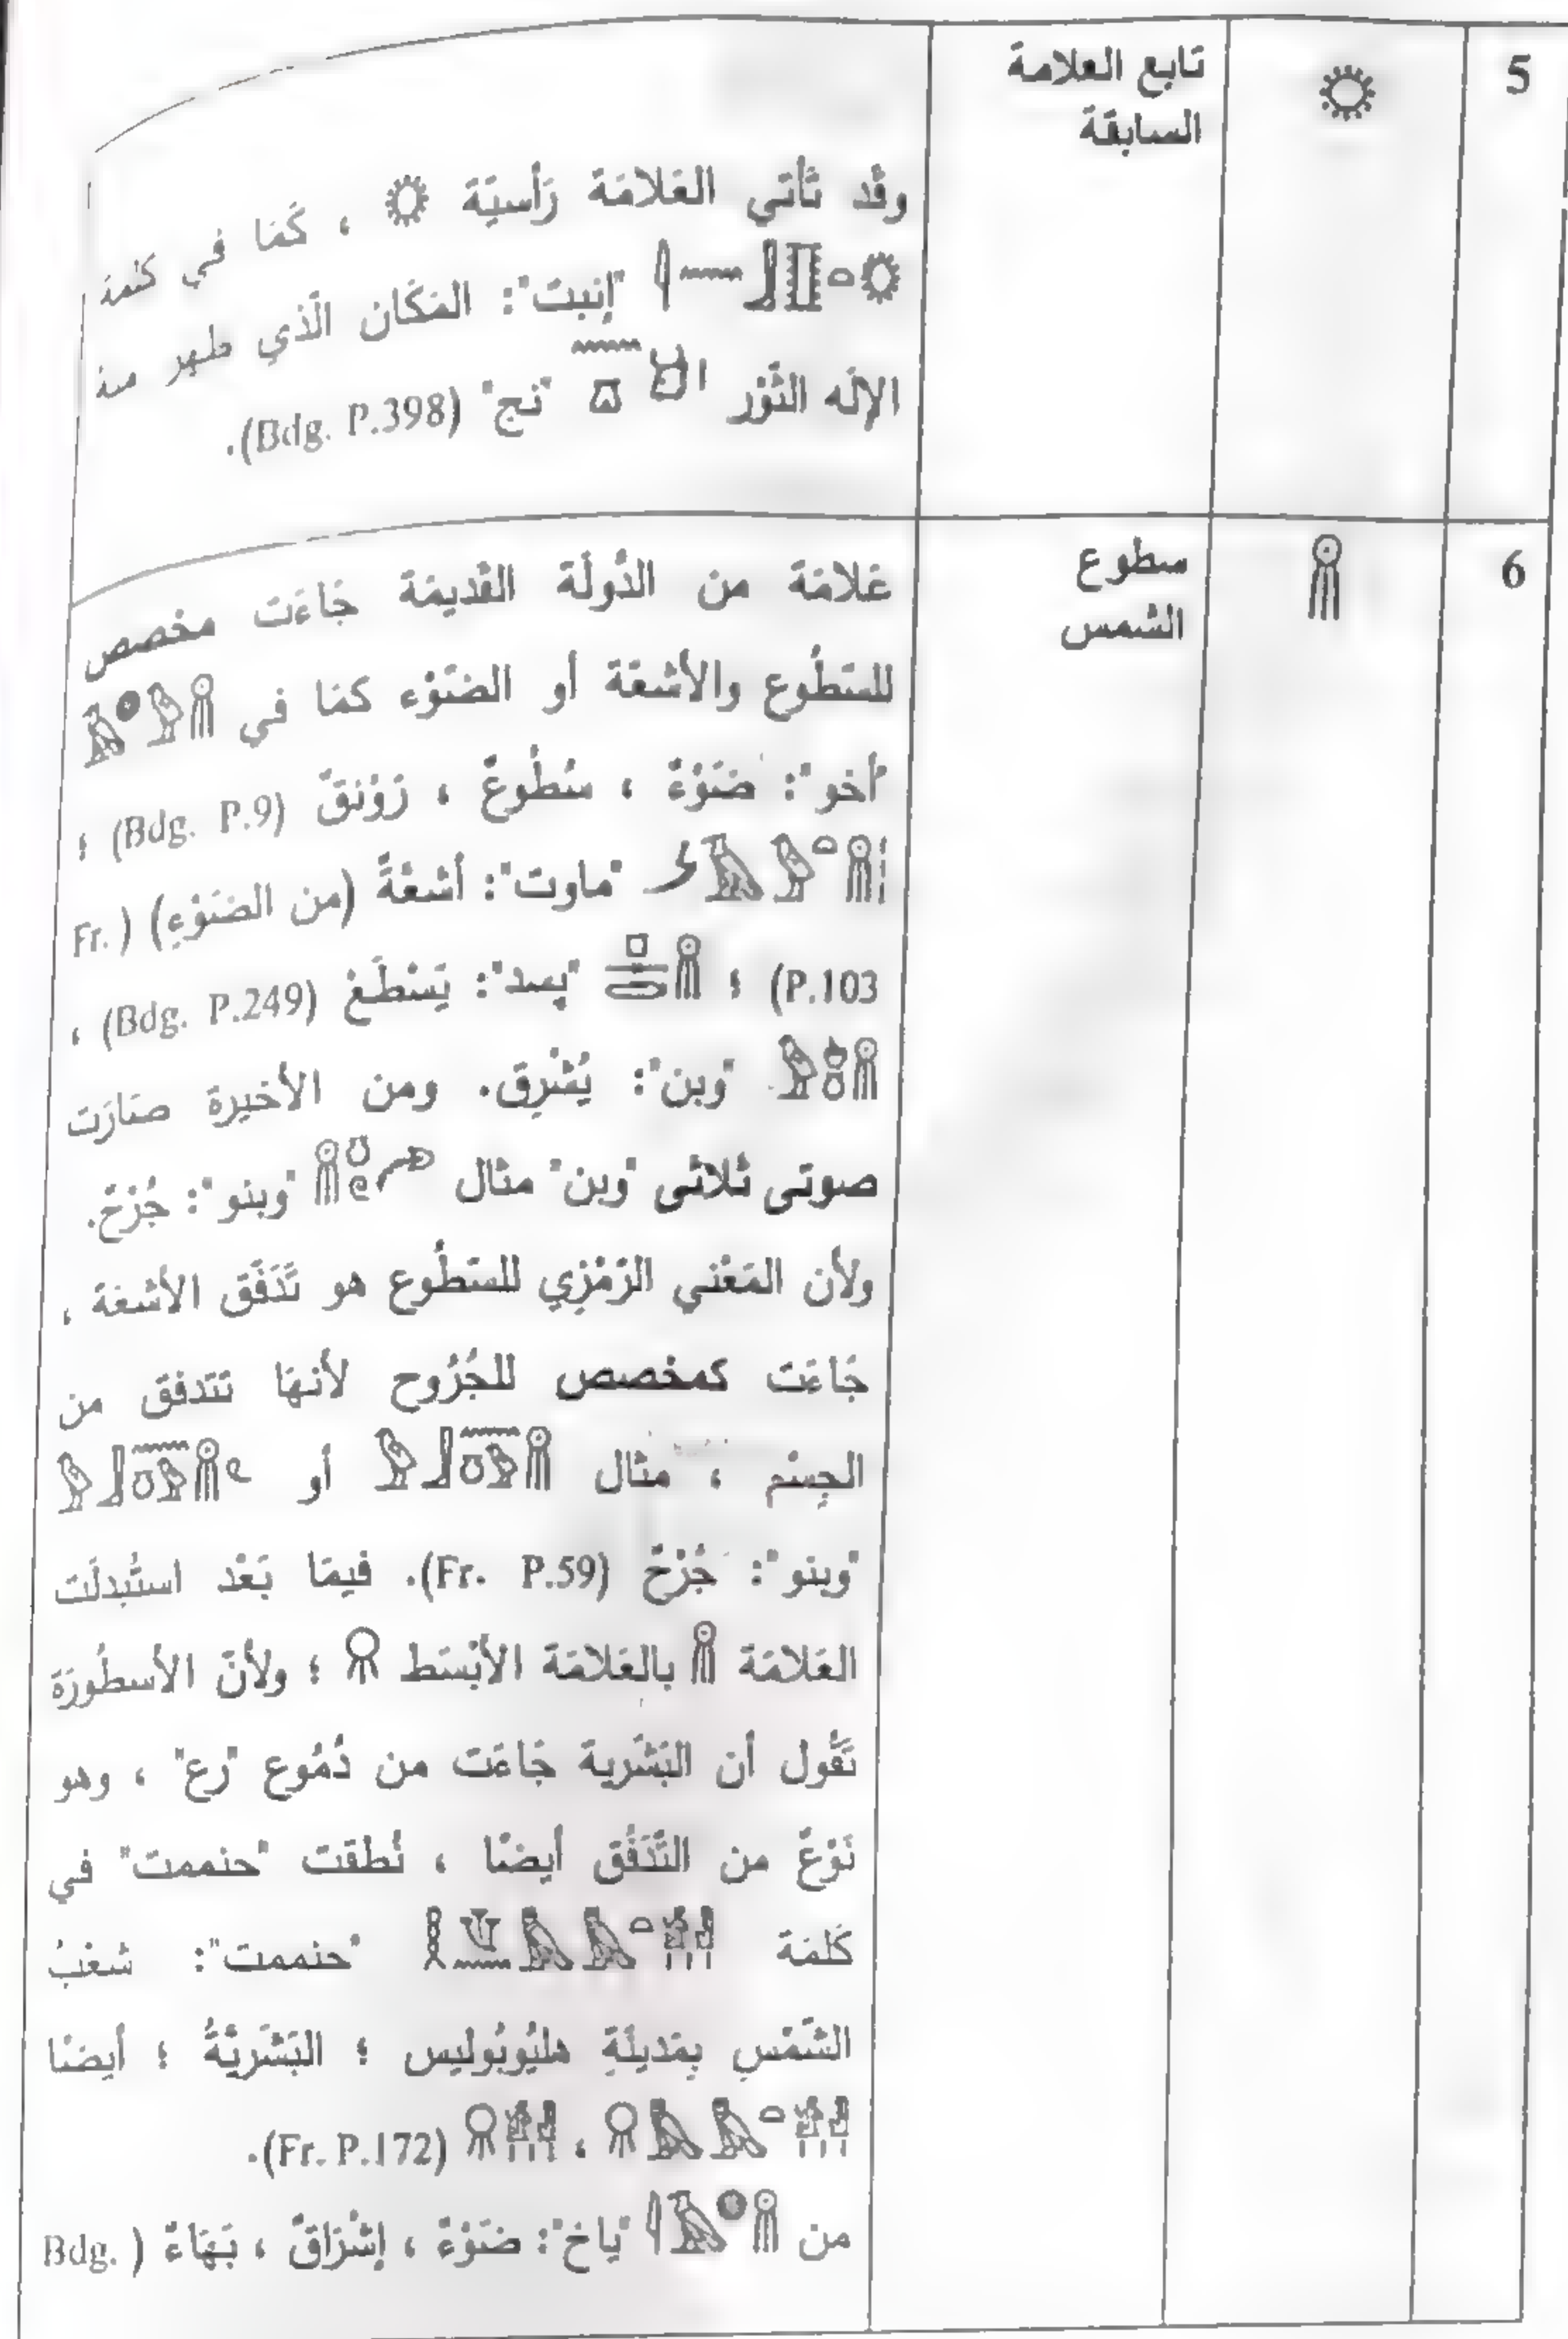 5 تابع العلامة
السابقة
وقَد تَأتي العَلامَة رَأسيَّة ، كَمَا في كلمة
"إنبت": المَكَان الّذي ظهر منه
الإلَه الثَّوْر "نج" (Bdg. P.398).
6 سطوع
الشمس
عَلامَة من الدَّولَة القَديمَة جَاءَت مخصص
للسَّطُوع والأشعَّة أو الضَّوْء كمَا في
"أخو": ضَوْءٌ ، سُطُوعٌ ، رَوْنَقٌ (Bdg. P.9) ؛
"ماوت": أشعَّةٌ (من الضَّوْءِ) (Fr.
P.103) ؛ "پسد": يَسْطَعْ (Bdg. P.249) ،
"وبن": يُشْرِق. ومن الأخيرة صَارَت
صوتى ثلاثى "وبن" مثال "وبنو": جُرْحٌ.
ولأن المَعْني الرَّمْزِي للسَّطُوع هو تَدَفَّق الأشعَة ،
جَاءَت كمخصص للجُرُوح لأنهَا تتدفق من
الجِسْم ، مثال أو
"وبنو": جُرْحٌ (Fr. P.59). فيمَا بَعْد استُبدلَت
العَلامَة بالعَلامَة الأبْسَط ؛ ولأنّ الأسطُورَة
تَقُول أن البَشَرية جَاءَت من دُمُوع "رع" ، وهو
نَوْعٌ من التَّدَفُّق أيضًا ، نُطقت "حنممت" في
كَلمَة "حنممت": شعْبُ
الشّمْسِ بِمَدينَةِ هليُوبُوليس ؛ البَشَريَّةُ ؛ أيضًا
، (Fr. P.172).
من "ياخ": ضَوْءٌ ، إشْرَاقٌ ، بَهَاءٌ (Bdg.